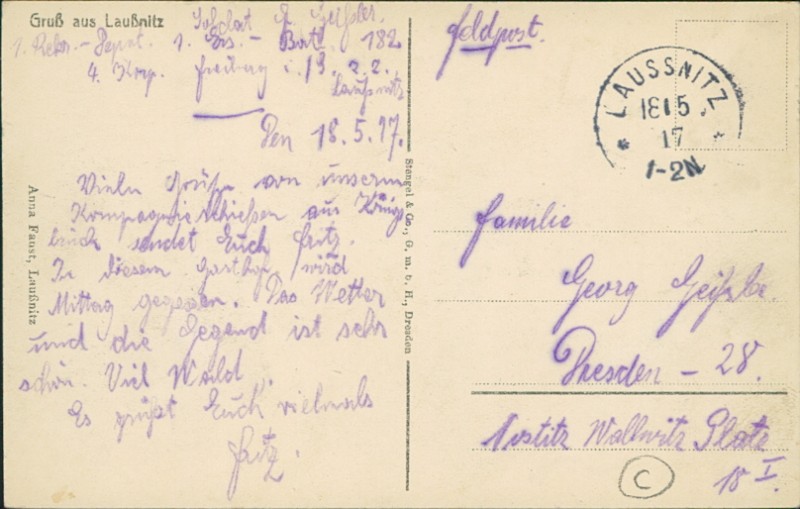 Gruß aus Laußnitz
Soldat G. Geißler.
1. Rekr.-Depot. 1. Ers.-Batl. 182
4. Komp. Freiberg i. S. z. Z.
Laußnitz
Den 18.5.17.
Viele Grüße von unserm
Kompagnieschießen aus Königs
brück sendet Euch Fritz.
In diesem Gasthof wird
Mittag gegessen. Das Wetter
und die Gegend ist sehr
schön. Viel Wald.
Es grüßt Euch vielmals
Fritz.
Anna Faust, Laußnitz
Stengel & Co., G. m. b. H., Dresden
Feldpost.
LAUSSNITZ
18 5.
17
1-2N
Familie
Georg Geißler
Dresden - 28.
Nostitz Wallwitz Platz
18 I.
C